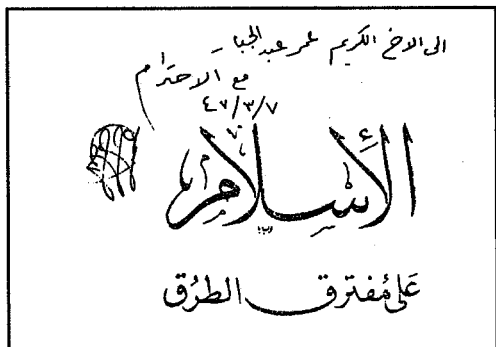 الى الاخ الكريم عمر عبد الجبار
مع الاحترام
٤٧/٣/٧
الأسلام
على مُفترق الطرُق